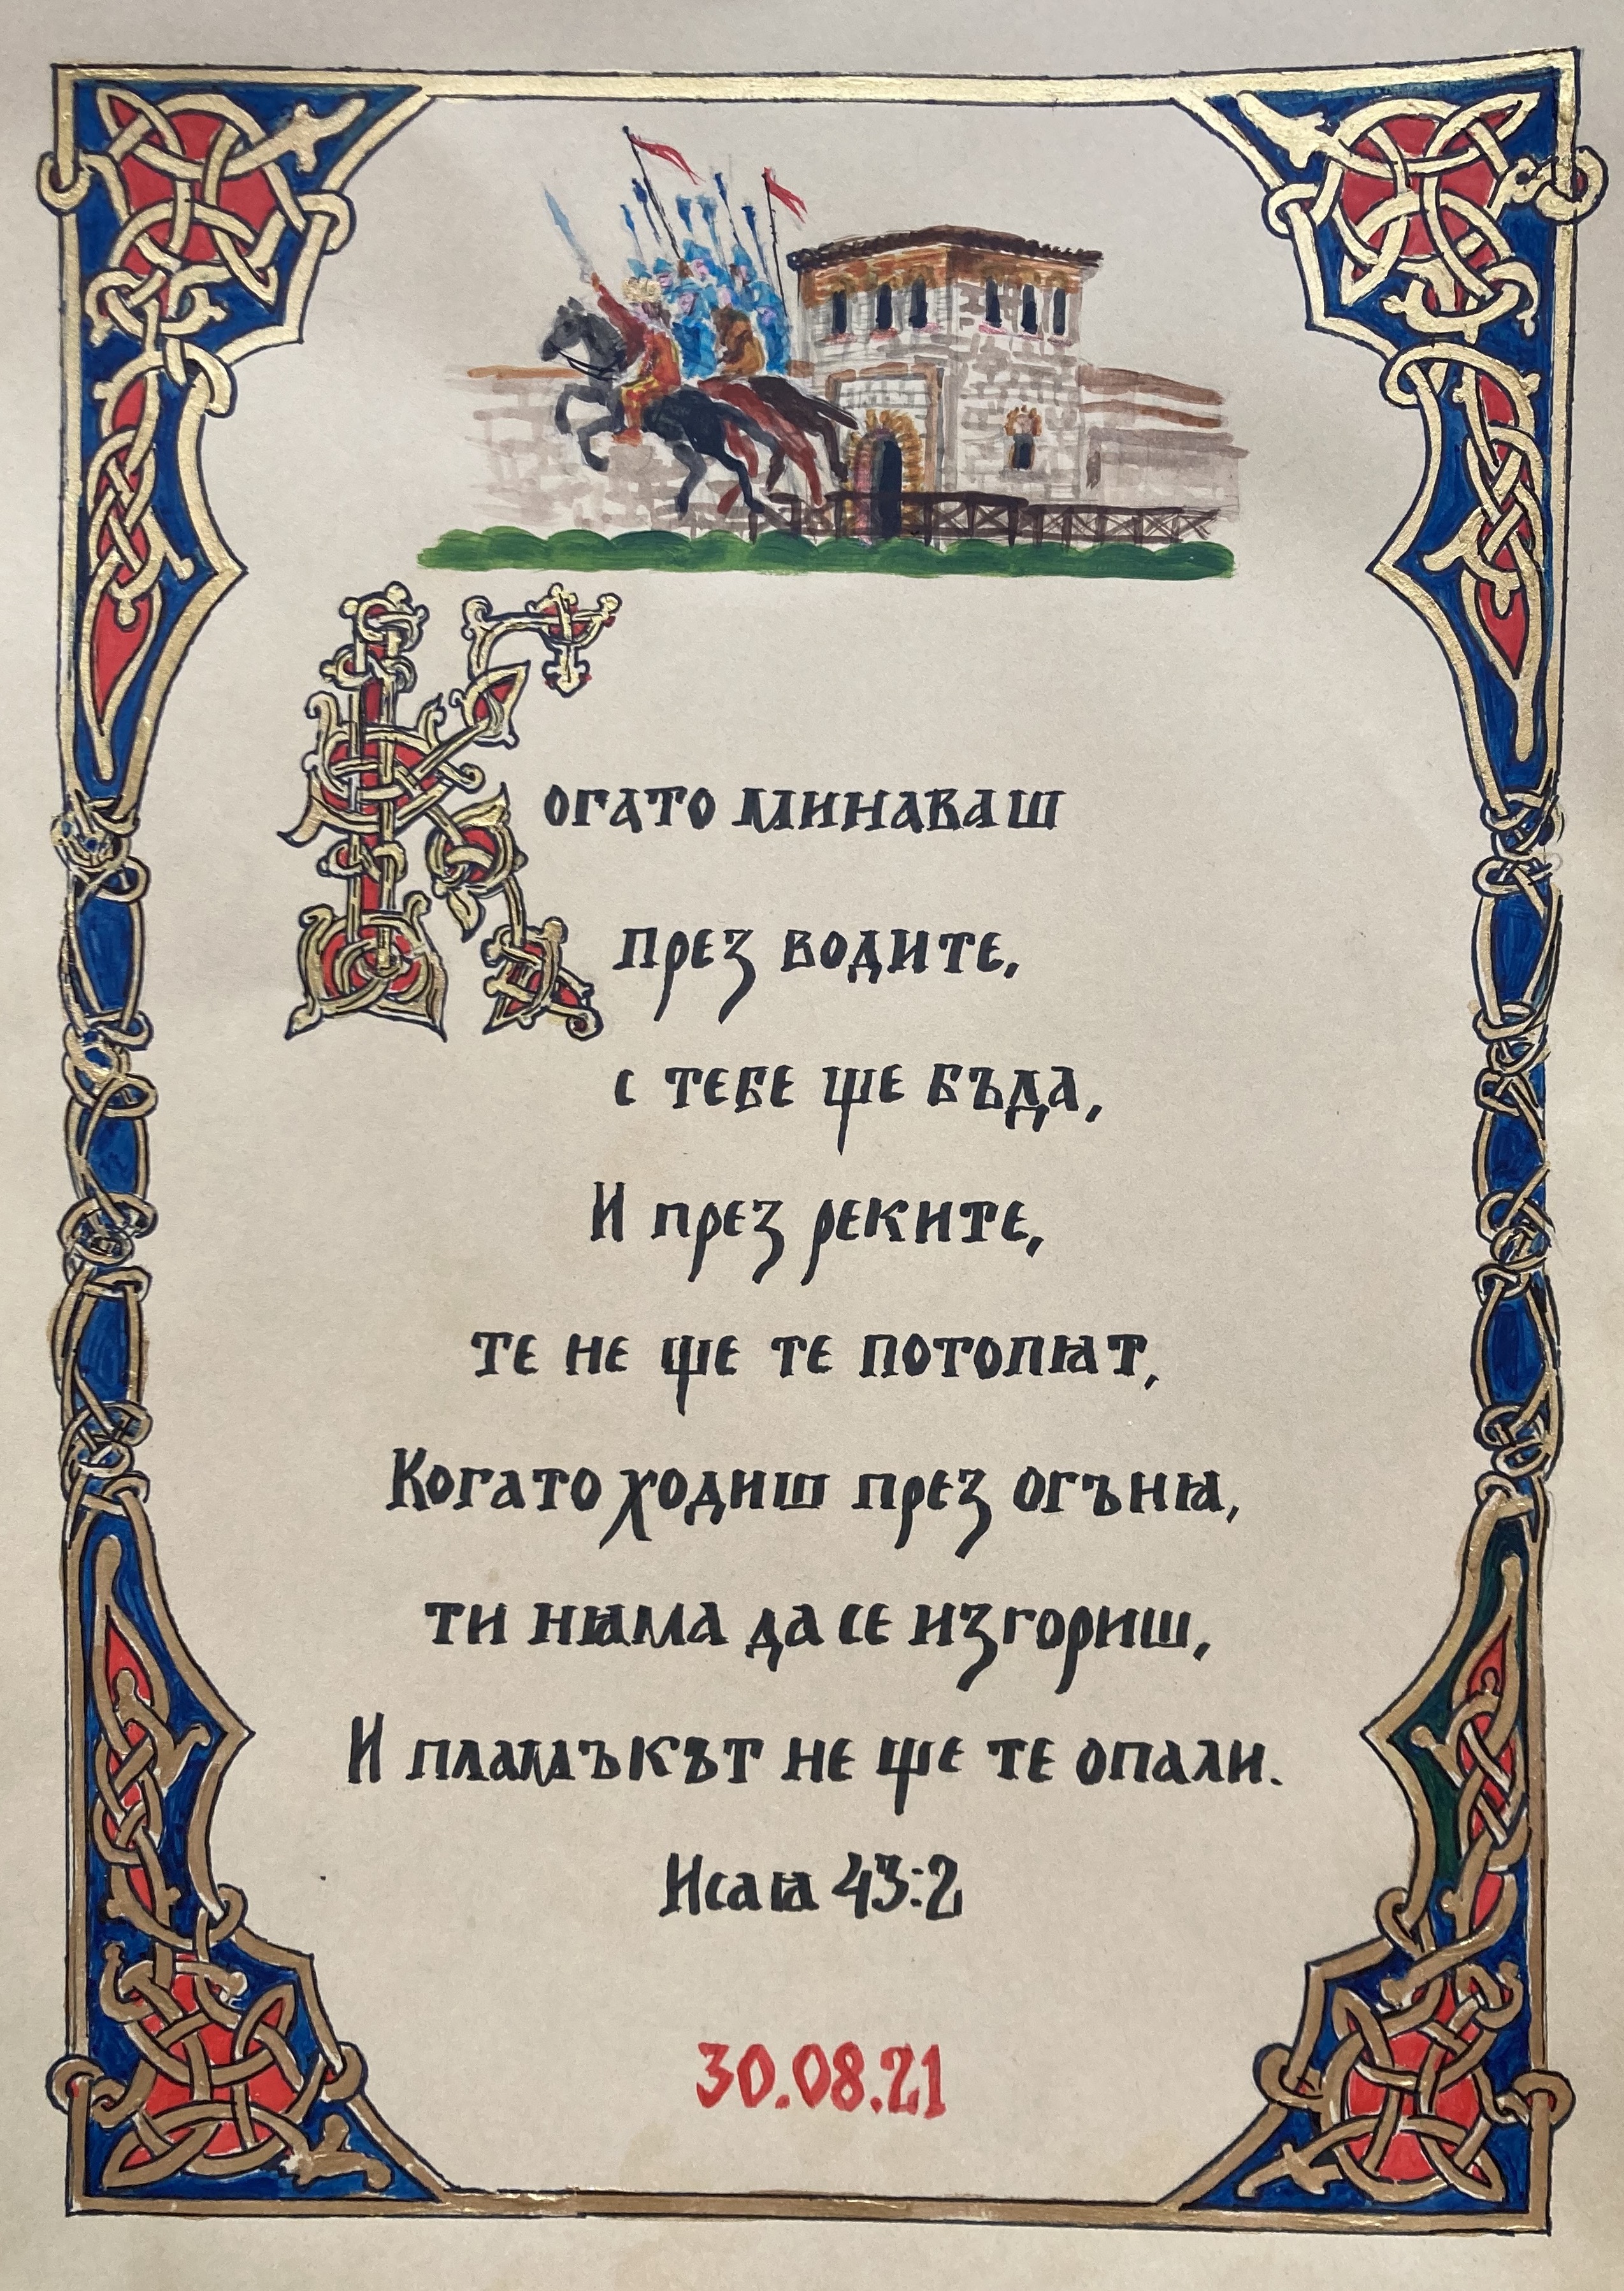 Когато минаваш
през водите,
с тебе ще бъда,
И през реките,
те не ще те потопят,
Когато ходиш през огъня,
ти няма да се изгориш,
И пламъкът не ще те опали.
Исая 43:2
30.08.21